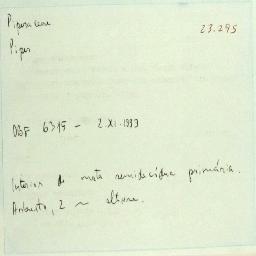 Piperaceae
23.295
Piper
6315 - 2.XI.1993
Interior de mata semidecídua primária.
Arbusto, 2 m altura.